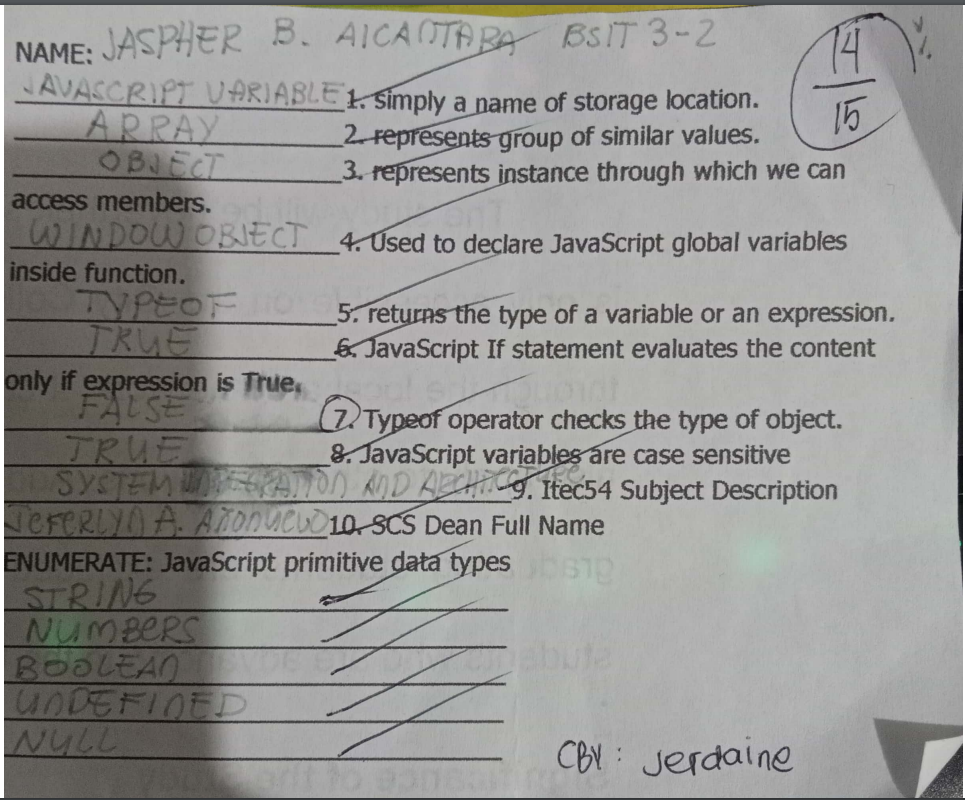 NAME: JASPHER B. AlCANTARA BSIT 3-2
14
15
JAVASCRIPT VARIABLE 1. simply a name of storage location.
ARRAY 2. represents group of similar values.
OBJECT 3. represents instance through which we can
access members.
WINDOW OBJECT 4. Used to declare JavaScript global variables
inside function.
TYPEOF 5. returns the type of a variable or an expression.
TRUE 6. JavaScript If statement evaluates the content
only if expression is True.
FALSE 7. Typeof operator checks the type of object.
TRUE 8. JavaScript variables are case sensitive
SYSTEM INTEGRATION AND ARCHITECTURE 9. Itec54 Subject Description
JeFERLYN A. AñonueVO 10. SCS Dean Full Name
ENUMERATE: JavaScript primitive data types
STRING
NUMBERS
BOOLEAN
UNDEFINED
NULL
CBY: Jerdaine